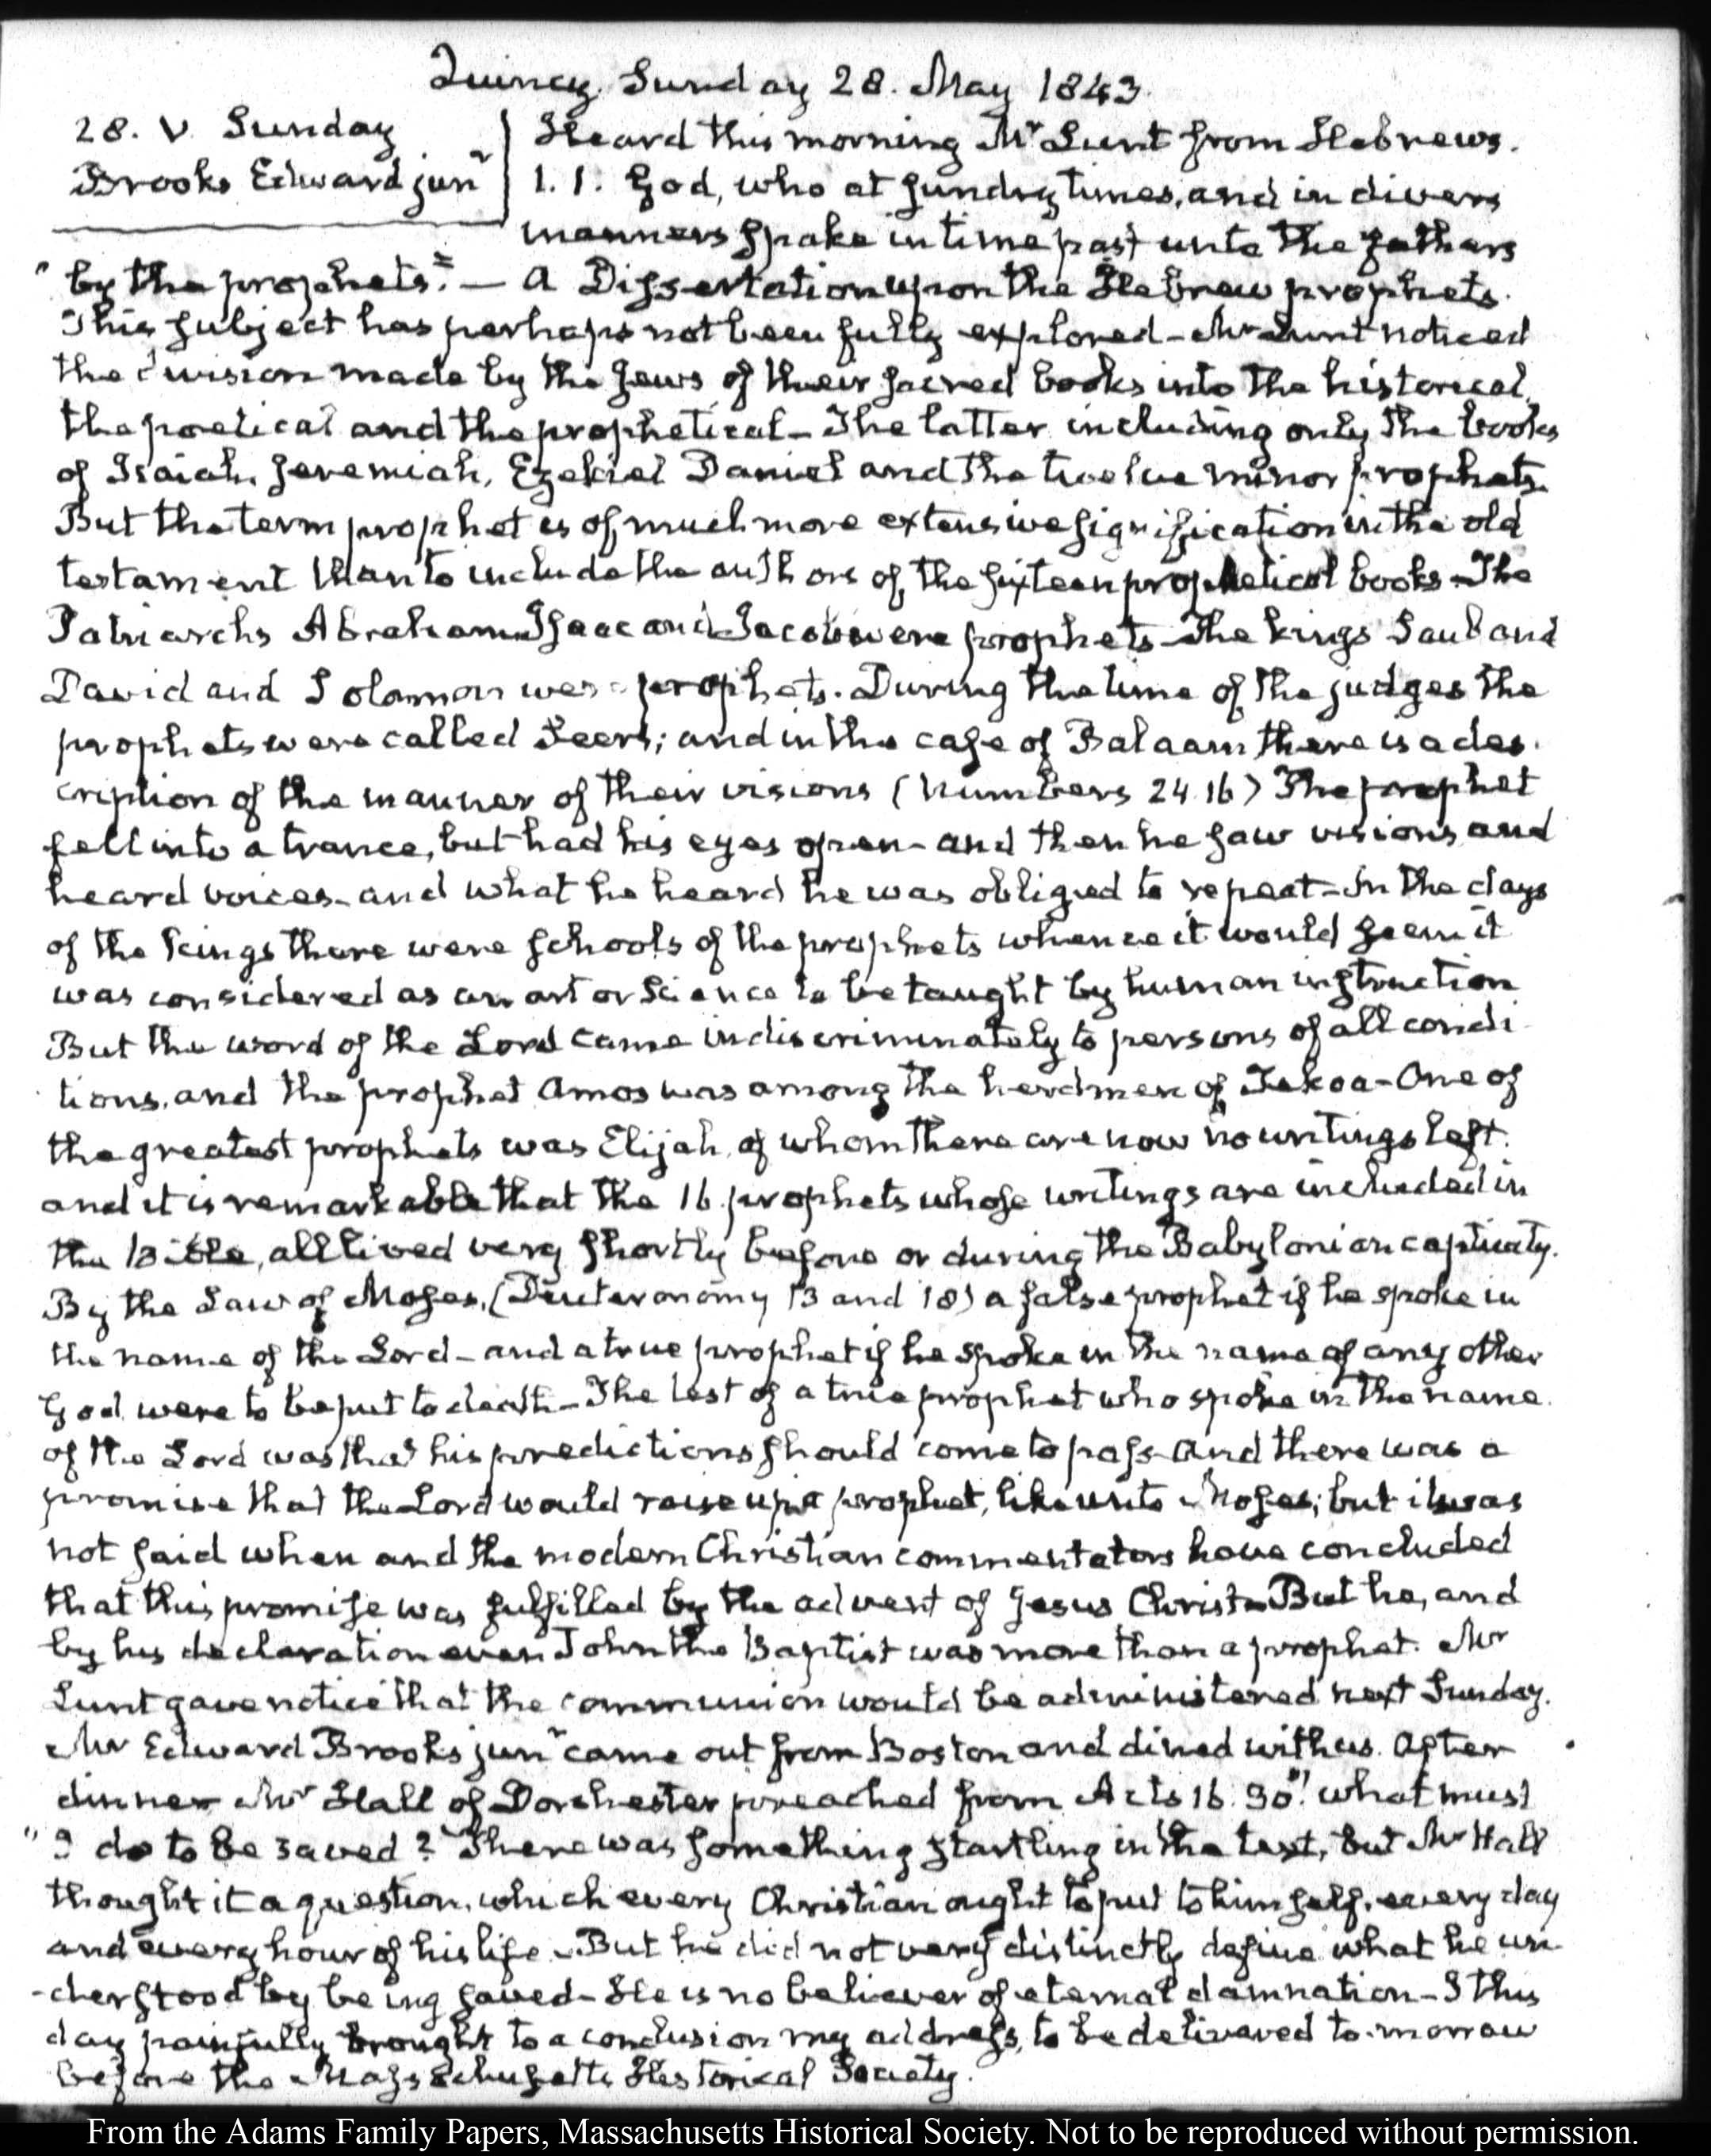 Quincy Sunday 28. May 1843.
28. V. Sunday
Brooks Edward junr
Heard this morning Mr Lunt from Hebrews.
1. 1. God, who at sundry times, and in divers
manners spake in time past unto the fathers
"by the prophets." — A Dissertation upon the Hebrew prophets.
This subject has perhaps not been fully explored – Mr Lunt noticed
the division made by the Jews of their sacred books into the historical,
the poetical and the prophetical – The latter including only the books
of Isaiah, Jeremiah, Ezekiel Daniel and the twelve minor prophets.
But the term prophet is of much more extensive signification in the old
testament than to include the authors of the sixteen prophetical books – The
Patriarchs Abraham Isaac and Jacob were prophets – The kings Saul and
David and Solomon were prophets. During the time of the judges the
prophets were called Seers; and in the case of Balaam there is a des-
cription of the manner of their visions (Numbers 24.16) The prophet
fell into a trance, but had his eyes open – and then he saw visions and
heard voices – and what he heard he was obliged to repeat – In the days
of the Kings there were schools of the prophets whence it would seem it
was considered as an art or Science to be taught by human instruction
But the word of the Lord came indiscriminately to persons of all condi-
tions, and the prophet Amos was among the herdmen of Tekoa – One of
the greatest prophets was Elijah, of whom there are now no writings left.
and it is remarkable that the 16 prophets whose writings are included in
the Bible, all lived very shortly before or during the Babylonian captivity.
By the Law of Moses, (Deuteronomy 13 and 18) a false prophet if he spoke in
the name of the Lord – and a true prophet if he spoke in the name of any other
God were to be put to death – The test of a true prophet who spoke in the name
of the Lord was that his predictions should come to pass – and there was a
promise that the Lord would raise up a prophet, like unto Moses; but it was
not said when and the modern Christian commentators have concluded
that this promise was fulfilled by the advent of Jesus Christ – But he, and
by his declaration even John the Baptist was more than a prophet. Mr
Lunt gave notice that the communion would be administered next Sunday.
Mr Edward Brooks junr came out from Boston and dined with us. After
dinner Mr Hall of Dorchester preached from Acts 16. 30. "what must
"I do to be saved? There was something startling in the text, but Mr Hall
thought it a question, which every Christian ought to put to himself, every day
and every hour of his life – But he did not very distinctly define what he un-
-derstood by being saved – He is no believer of eternal damnation – I this
day painfully brought to a conclusion my address, to be delivered to-morrow
before the Massachusetts Historical Society.
From the Adams Family Papers, Massachusetts Historical Society. Not to be reproduced without permission.